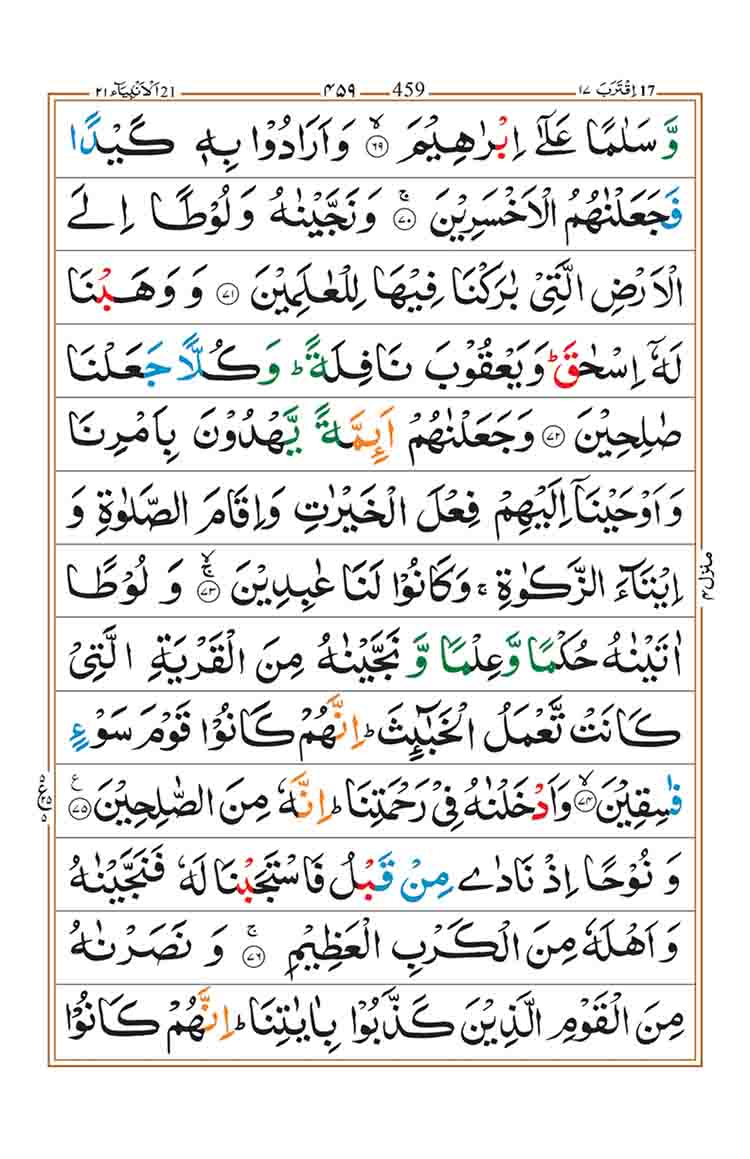 21 اَلْاَنْۢبِيَآء ٢١ 459 ۴۵۹ 17 اِقْتَرَبَ ١٧
وَّ سَلٰمًا عَلٰۤى اِبْرٰهِيْمَ ۙ‏﴿۶۹﴾ وَ اَرَادُوْا بِهٖ كَيْدًا
فَجَعَلْنٰهُمُ الْاَخْسَرِيْنَ ۚ‏﴿۷۰﴾ وَ نَجَّيْنٰهُ وَ لُوْطًا اِلَى
الْاَرْضِ الَّتِىْ بٰرَكْنَا فِيْهَا لِلْعٰلَمِيْنَ ﴿۷۱﴾ وَ وَهَبْنَا
لَهٗۤ اِسْحٰقَ ؕ وَ يَعْقُوْبَ نَافِلَةً ؕ وَ كُلًّا جَعَلْنَا
صٰلِحِيْنَ ﴿۷۲﴾ وَ جَعَلْنٰهُمْ اَئِمَّةً يَّهْدُوْنَ بِاَمْرِنَا
وَ اَوْحَيْنَاۤ اِلَيْهِمْ فِعْلَ الْخَيْرٰتِ وَ اِقَامَ الصَّلٰوةِ وَ
اِيْتَآءَ الزَّكٰوةِ ۚ وَ كَانُوْا لَنَا عٰبِدِيْنَ ۙۚ‏﴿۷۳﴾ وَ لُوْطًا
اٰتَيْنٰهُ حُكْمًا وَّ عِلْمًا وَّ نَجَّيْنٰهُ مِنَ الْقَرْيَةِ الَّتِىْ
كَانَتْ تَّعْمَلُ الْخَبٰٓئِثَ ؕ اِنَّهُمْ كَانُوْا قَوْمَ سَوْءٍ
فٰسِقِيْنَ ۙ‏﴿۷۴﴾ وَ اَدْخَلْنٰهُ فِىْ رَحْمَتِنَا ؕ اِنَّهٗ مِنَ الصّٰلِحِيْنَ ﴿۷۵﴾ ع
وَ نُوْحًا اِذْ نَادٰى مِنْ قَبْلُ فَاسْتَجَبْنَا لَهٗ فَنَجَّيْنٰهُ
وَ اَهْلَهٗ مِنَ الْكَرْبِ الْعَظِيْمِ ۚ‏﴿۷۶﴾ وَ نَصَرْنٰهُ
مِنَ الْقَوْمِ الَّذِيْنَ كَذَّبُوْا بِاٰيٰتِنَا ؕ اِنَّهُمْ كَانُوْا
منزل ۴